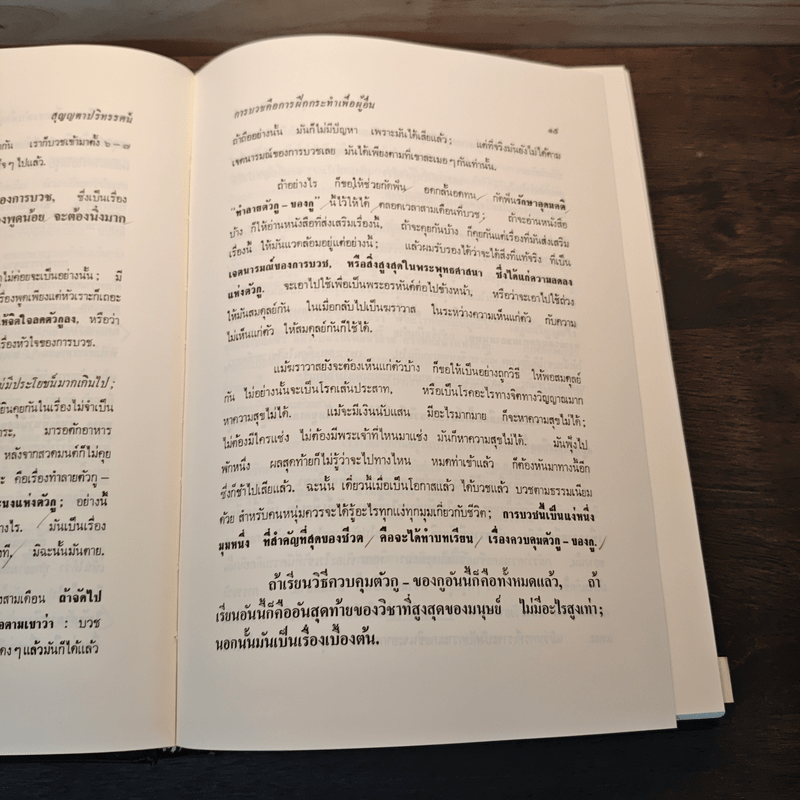 สุญญตาปริทรรศน์
กัน เราก็บวชเข้ามาตั้ง ๖ – ๗
ๆ ไปแล้ว.
องการบวช, ซึ่งเป็นเรื่อง
พูดน้อย จะต้องนิ่งมาก
ไม่ค่อยจะเป็นอย่างนั้น ; มี
เรื่องพูดเพียงแต่หัวเราะก็เถอะ
ให้จิตใจลดตัวกูลง, หรือว่า
เรื่องหัวใจของการบวช.
ไม่มีประโยชน์มากเกินไป ;
ยินคุยกันในเรื่องไม่จำเป็น
มารอตักอาหาร
หลังจากสวดมนต์ก็ไม่คุย
คือเรื่องทำลายตัวกู –
แห่งตัวกู ; อย่างนี้
างไร. มันเป็นเรื่อง
ที, มิฉะนั้นมันตาย.
สามเดือน ถ้าจัดไป
อตามเขาว่า : บวช
ๆ แล้วมันก็ได้แล้ว
การบวชคือการฝึกกระทำเพื่อผู้อื่น ๑๕
ถ้าถืออย่างนั้น มันก็ไม่มีปัญหา เพราะมันได้เสียแล้ว ; แต่ที่จริงมันยังไม่ได้ตาม
เจตนารมณ์ของการบวชเลย มันได้เพียงตามที่เขาละเมอ ๆ กันเท่านั้น.
ถ้าอย่างไร ก็ขอให้ช่วยกัดฟัน อดกลั้นอดทน, กัดฟันรักษาอุดมคติ
“ทำลายตัวกู – ของกู” นี้ไว้ให้ได้ ตลอดเวลาสามเดือนที่บวช ; ถ้าจะอ่านหนังสือ
บ้าง ก็ให้อ่านหนังสือที่ส่งเสริมเรื่องนี้, ถ้าจะคุยกันบ้าง ก็คุยกันแต่เรื่องที่มันส่งเสริม
เรื่องนี้ ให้มันแวดล้อมอยู่แต่อย่างนี้ ; แล้วผมรับรองได้ว่าจะได้สิ่งที่แท้จริง ที่เป็น
เจตนารมณ์ของการบวช, หรือสิ่งสูงสุดในพระพุทธศาสนา ซึ่งได้แก่ความลดลง
แห่งตัวกู. จะเอาไปใช้เพื่อเป็นพระอรหันต์ต่อไปข้างหน้า, หรือว่าจะเอาไปใช้ถ่วง
ให้มันสมดุลย์กัน ในเมื่อกลับไปเป็นฆราวาส ในระหว่างความเห็นแก่ตัว กับความ
ไม่เห็นแก่ตัว ให้สมดุลย์กันก็ใช้ได้.
แม้ฆราวาสยังจะต้องเห็นแก่ตัวบ้าง ก็ขอให้เป็นอย่างถูกวิธี ให้พอสมดุลย์
กัน ไม่อย่างนั้นจะเป็นโรคเส้นประสาท, หรือเป็นโรคอะไรทางจิตทางวิญญาณมาก
หาความสุขไม่ได้. แม้จะมีเงินนับแสน มีอะไรมากมาย ก็จะหาความสุขไม่ได้ ;
ไม่ต้องมีใครแช่ง ไม่ต้องมีพระเจ้าที่ไหนมาแช่ง มันก็หาความสุขไม่ได้. มันฟุ้งไป
พักหนึ่ง ผลสุดท้ายก็ไม่รู้ว่าจะไปทางไหน หมดท่าเข้าแล้ว ก็ต้องหันมาทางนี้อีก
ซึ่งก็ช้าไปเสียแล้ว. ฉะนั้น เดี๋ยวนี้เมื่อเป็นโอกาสแล้ว ได้บวชแล้ว บวชตามธรรมเนียม
ด้วย สำหรับคนหนุ่มควรจะได้รู้อะไรทุกแง่ทุกมุมเกี่ยวกับชีวิต ; การบวชนี้เป็นแง่หนึ่ง
มุมหนึ่ง ที่สำคัญที่สุดของชีวิต คือจะได้ทำบทเรียน เรื่องควบคุมตัวกู – ของกู.
ถ้าเรียนวิธีควบคุมตัวกู – ของกูอันนี้ก็คือทั้งหมดแล้ว, ถ้า
เรียนอันนี้ก็คืออันสุดท้ายของวิชาที่สูงสุดของมนุษย์ ไม่มีอะไรสูงเท่า ;
นอกนั้นมันเป็นเรื่องเบื้องต้น.